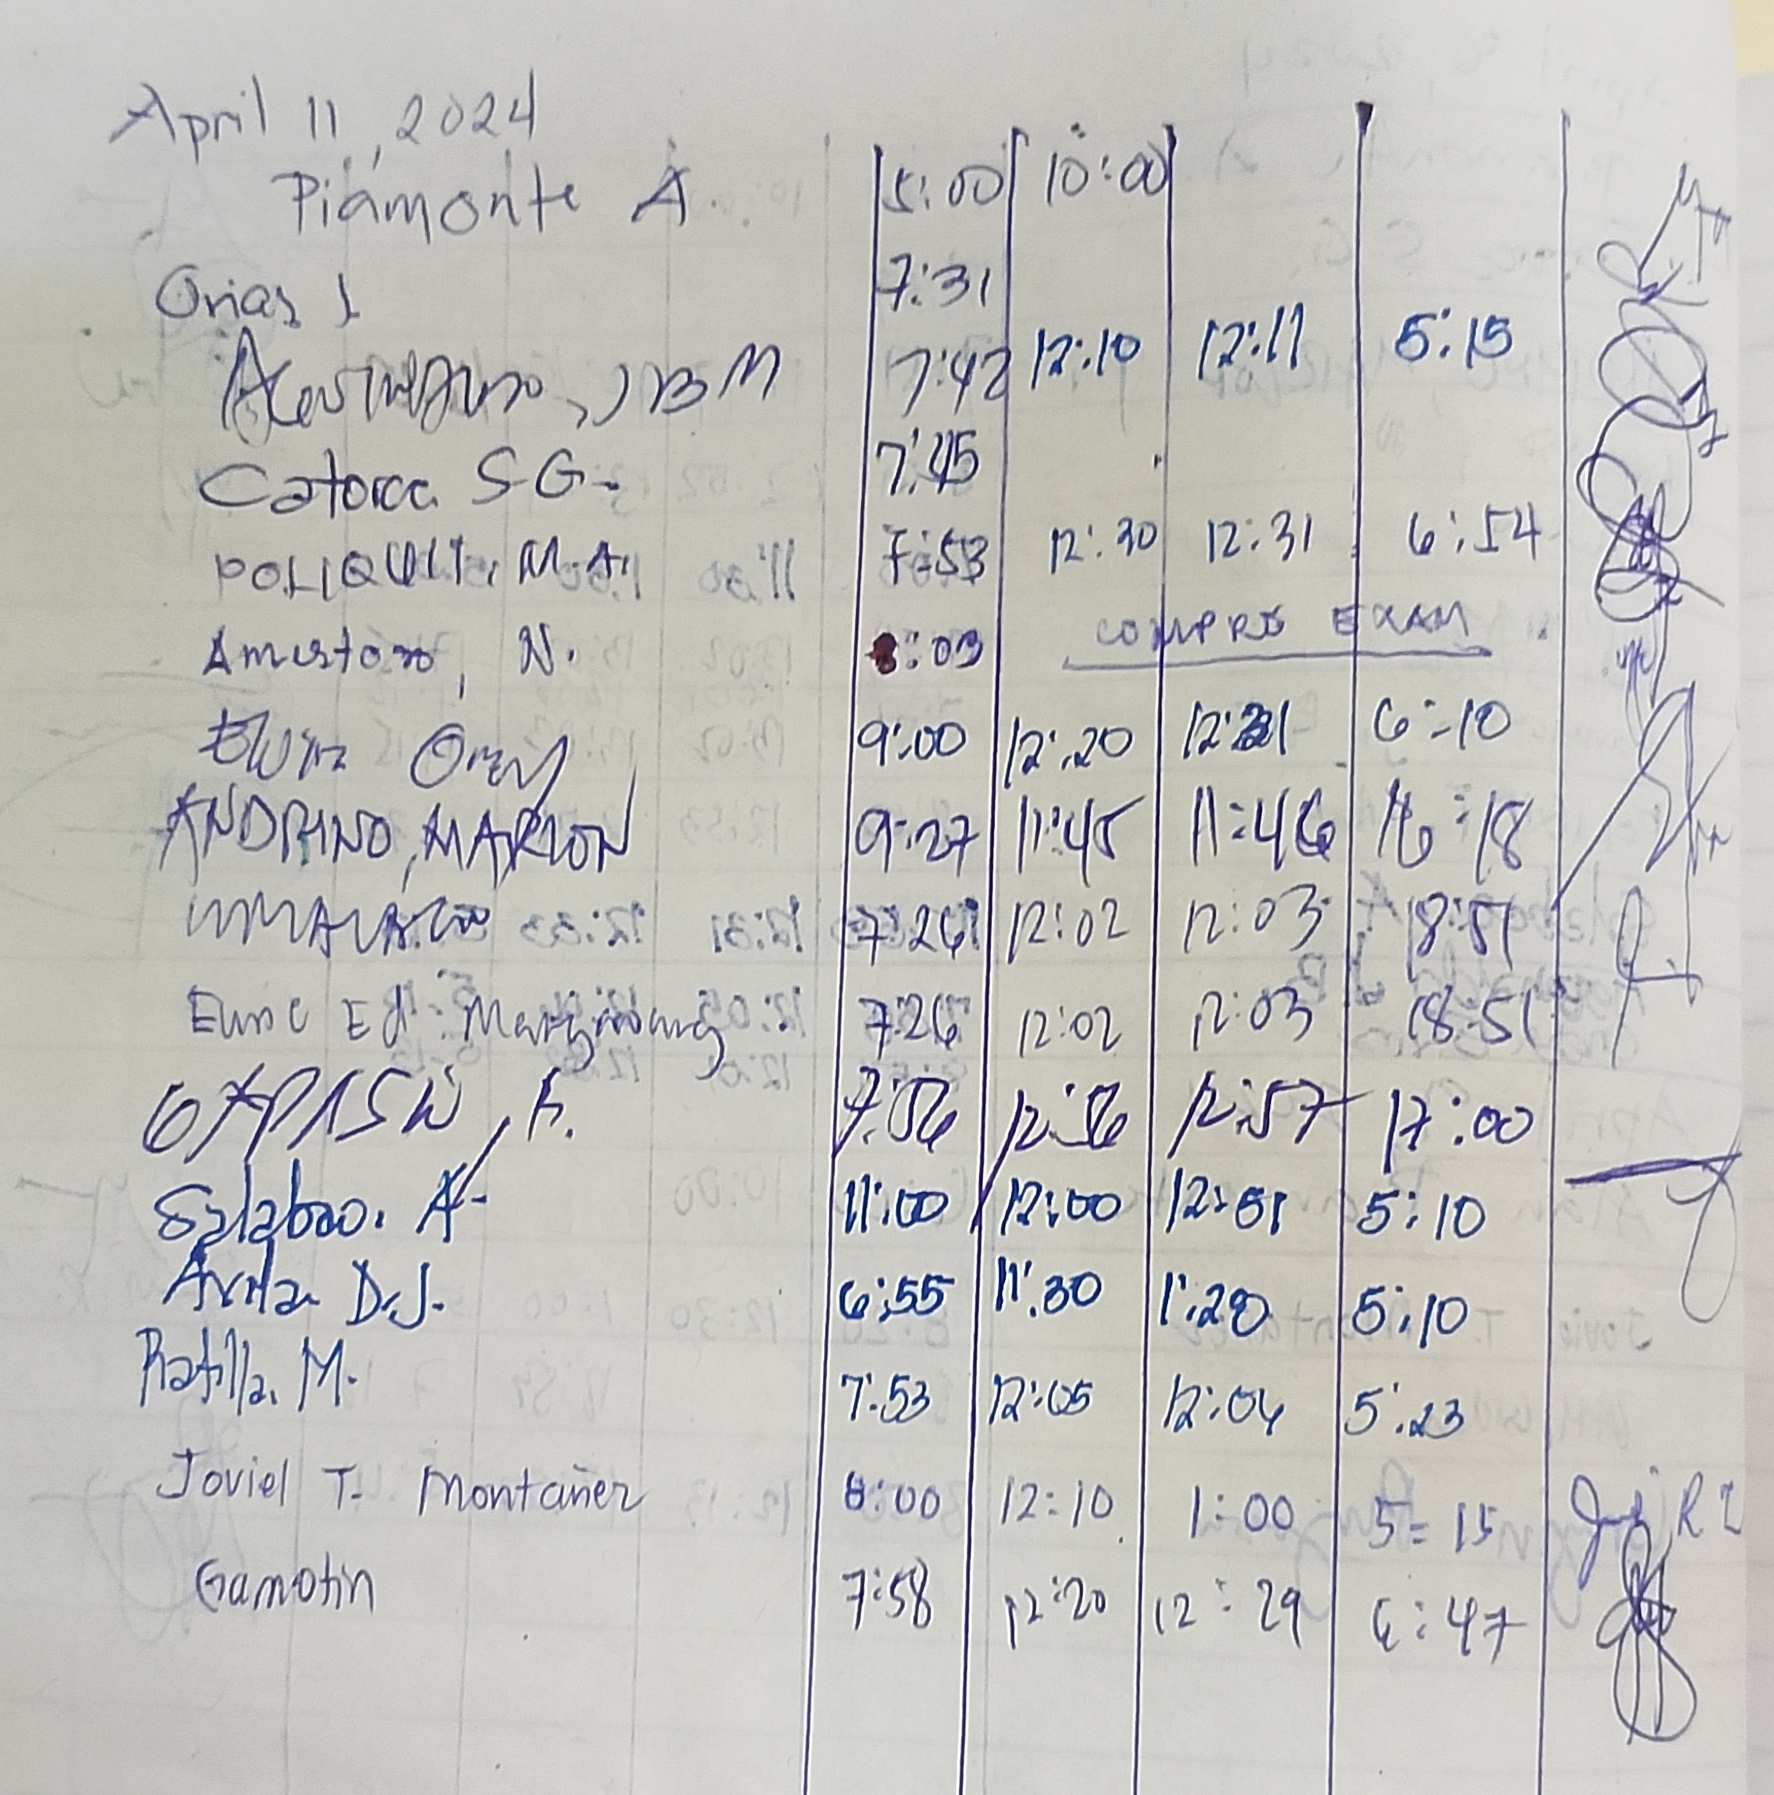 April 11, 2024
Piamonte A. 5:00 10:00
Orias J 7:31
JBM 7:42 12:10 12:11 5:15
Catorce S G. 7:45
POLIQUIT, M.A. 7:53 12:30 12:31 6:54
Amistoso, N. 8:03 COMPRE EXAM
9:00 12:20 12:21 6:10
ANDRINO, MARLON 9:27 11:45 11:46 16:18
7:26 12:02 12:03 18:51
Ed 7:26 12:02 12:03 18:51
7:56 12:56 12:57 17:00
Salabao. A- 11:00 12:00 12:51 5:10
Avila D.J. 6:55 11:30 1:20 5:10
Ratilla. M. 7:53 12:05 12:06 5:23
Joviel T. Montañez 8:00 12:10 1:00 5:15
Gamotin 7:58 12:20 12:29 6:47